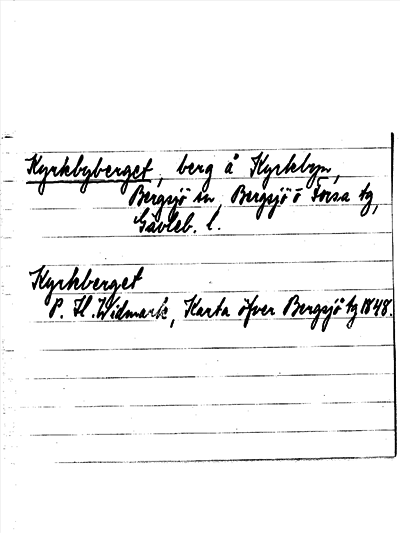 Kyrkbyberget, berg å Kyrkbyn,
Bergsjö sn, Bergsjö o Forsa tg,
Gävleb. l.
Kyrkberget
P. H. Widmark, Karta öfver Bergsjö tg 1848.